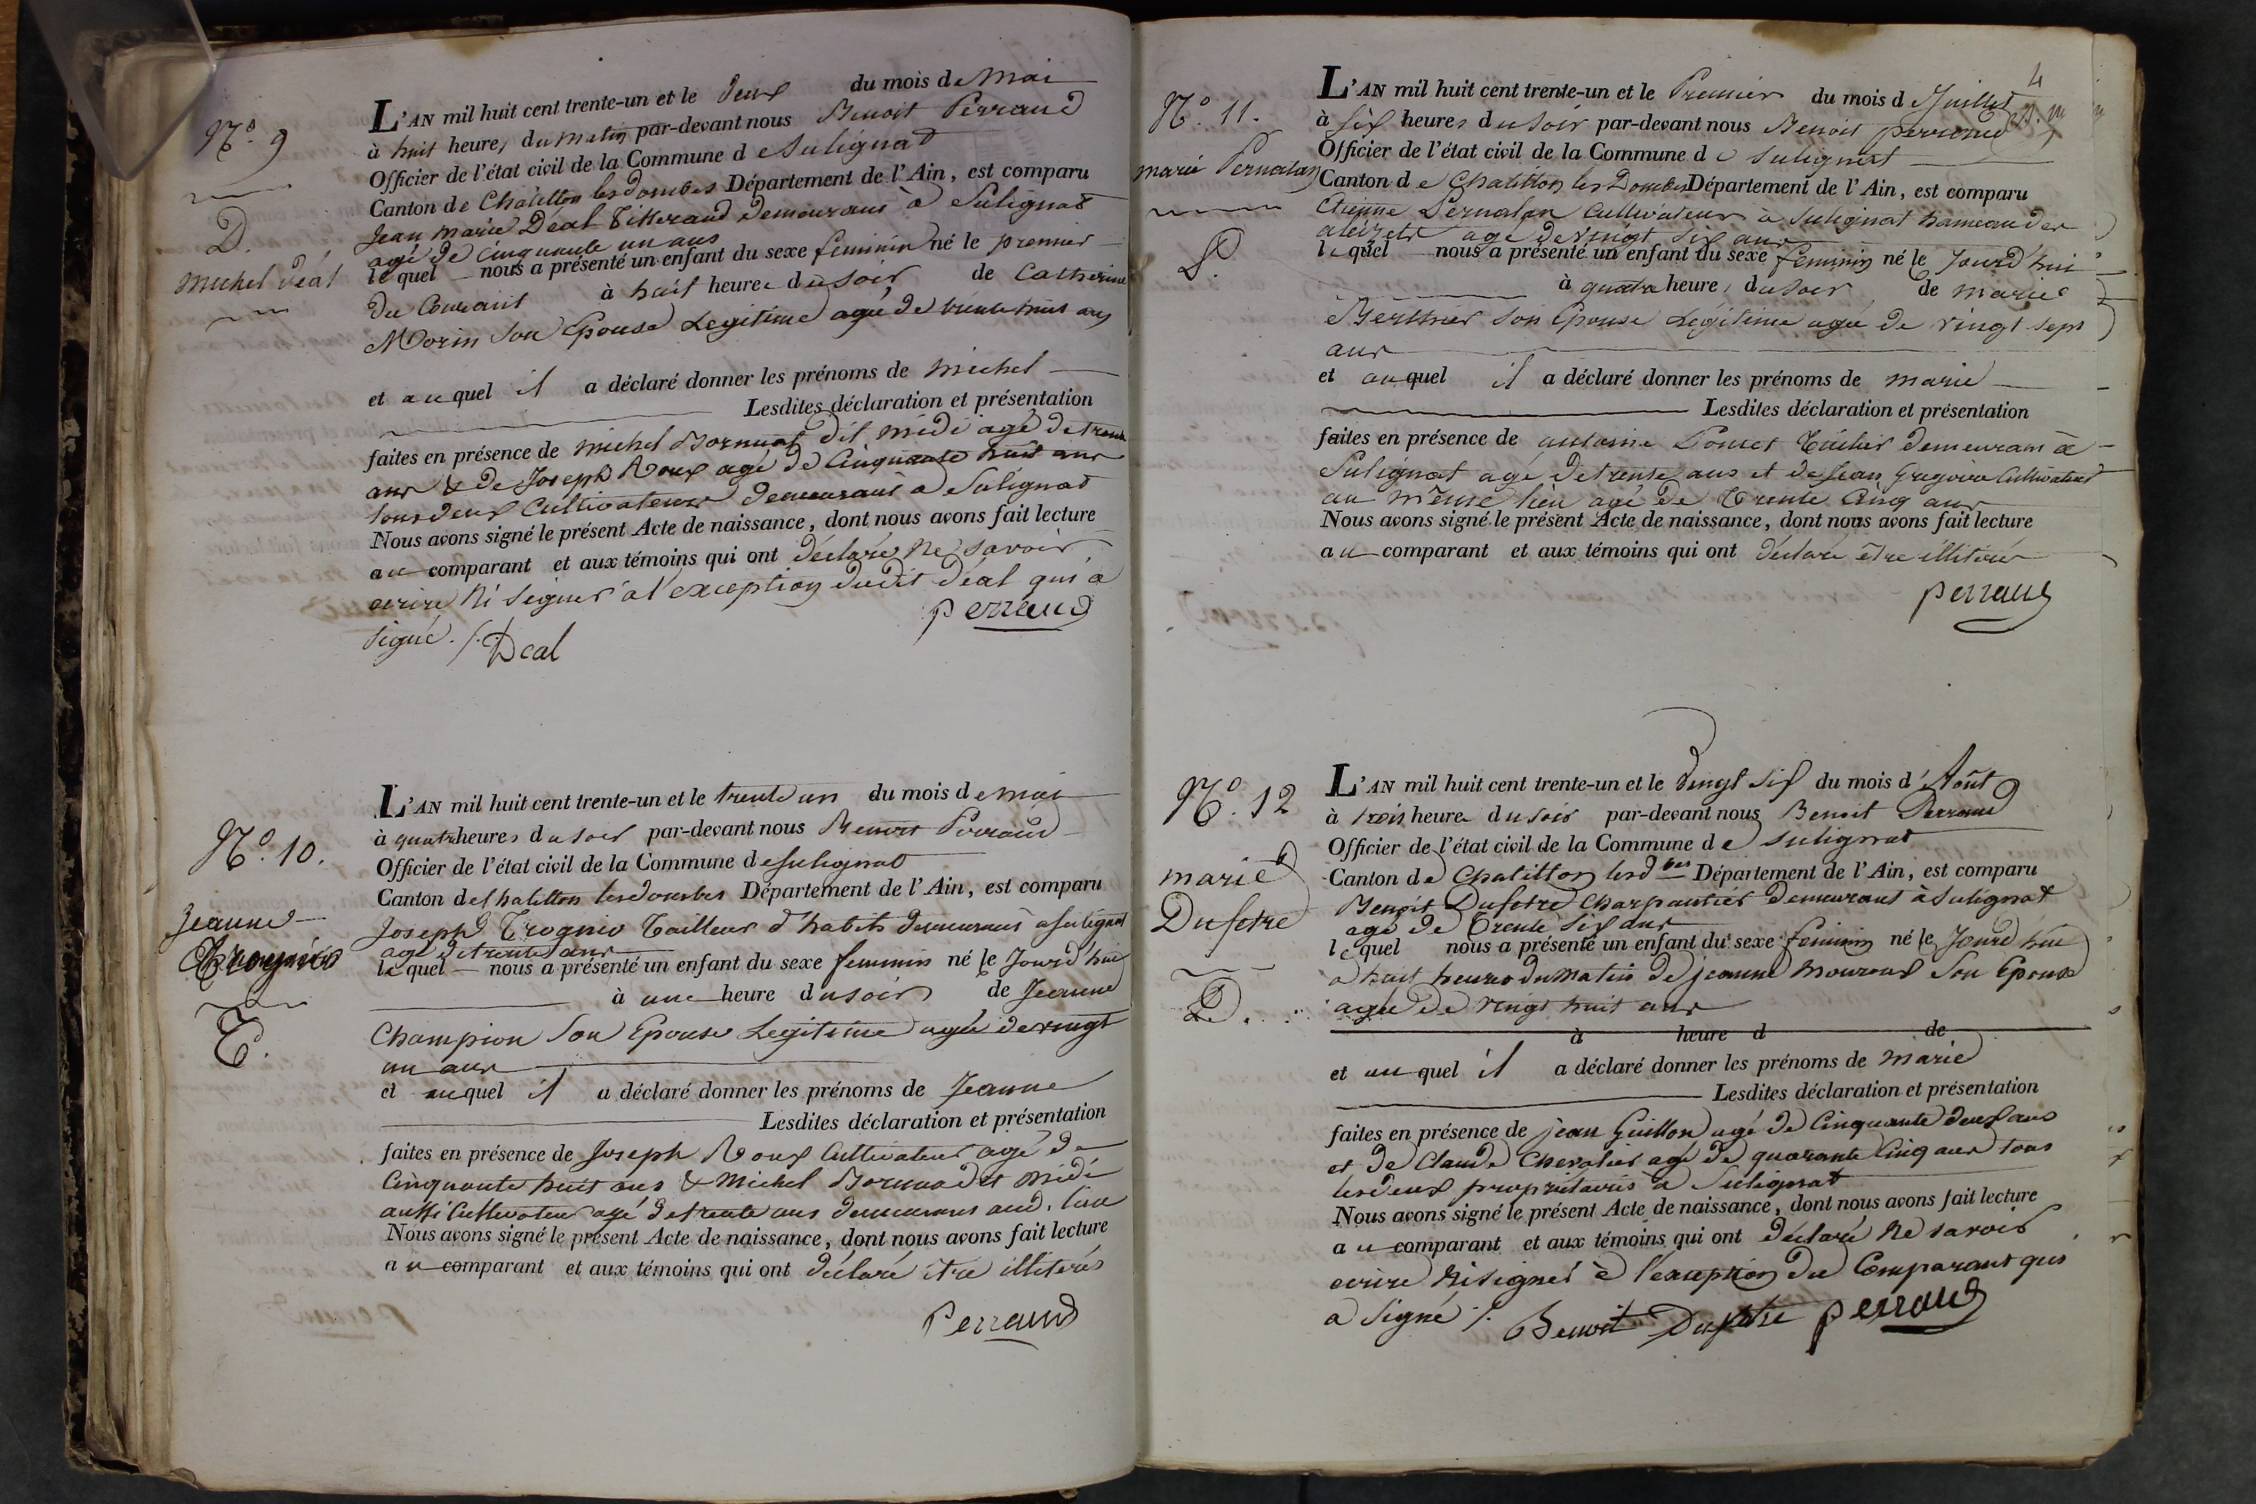 N.o 9
D.
Michel Déal
L'AN mil huit cent trente-un et le deux du mois de Mai
à huit heures du matin par-devant nous Benoit Perraud
Officier de l'état civil de la Commune de Sulignat
Canton de Chatillon les dombes Département de l'Ain, est comparu
Jean Marie Déal Titterand demeurant à Sulignat
agé de cinquante un ans
lequel nous a présenté un enfant du sexe feminin né le premier
du Courant à huit heures du soir de Catherine
Morin Son Epouse Legitime agée de trente huit ans
et auquel il a déclaré donner les prénoms de Michel
Lesdites déclaration et présentation
faites en présence de Michel Bornuat dit médi agé de trente
ans & de Joseph Roux agé de Cinquante huit ans
tous deux Cultivateurs demeurant a Sulignat
Nous avons signé le présent Acte de naissance, dont nous avons fait lecture
au comparant et aux témoins qui ont déclaré Ne Savoir
ecrire Ni Signer à l'exception dudit Déal qui a
signé ./.
Déal Perraud
N.o 10.
Jeanne
Trognio
T.
L'AN mil huit cent trente-un et le trente un du mois de mai
à quatre heures du soir par-devant nous Benoit Perraud
Officier de l'état civil de la Commune de Sulignat
Canton de Chatillon les dombes Département de l'Ain, est comparu
Joseph Trognio Tailleur d'habits demeurant a Sulignat
agé de trente ans
lequel nous a présenté un enfant du sexe feminin né le Jourd'hui
à une heure du soir de Jeanne
Champion Son Epouse Legitime agée de vingt
un ans
et auquel il a déclaré donner les prénoms de Jeanne
Lesdites déclaration et présentation
faites en présence de Joseph Roux Cultivateur agé de
Cinquante huit ans & Michel Bornuad dit médi
aussi Cultivateur agé de trente ans demeurans aud. lieu
Nous avons signé le présent Acte de naissance, dont nous avons fait lecture
au comparant et aux témoins qui ont déclaré être illiterés
Perraud
4
N.o 11.
marie Pernatan
D.
L'AN mil huit cent trente-un et le Premier du mois de Juillet
à six heures du soir par-devant nous Benoit perraud
Officier de l'état civil de la Commune de Sulignat
Canton de Chatillon les Dombes Département de l'Ain, est comparu
Etienne Pernatan Cultivateur a Sulignat hameau des
agé de vingt six ans
lequel nous a présenté un enfant du sexe feminin né le Jourd'hui
à quatre heures du soir de marie
Berthier son Epouse Legitime agée de vingt sept
ans
et auquel il a déclaré donner les prénoms de marie
Lesdites déclaration et présentation
faites en présence de antoine Poncet demeurant à
Sulignat agé de trente ans et de Jean Gregoire Cultivateur
au même lieu agé de Trente Cinq ans
Nous avons signé le présent Acte de naissance, dont nous avons fait lecture
au comparant et aux témoins qui ont déclaré être illiterés
Perraud
N.o 12
marie
Dufetre
D.
L'AN mil huit cent trente-un et le Vingt Six du mois d'Août
à trois heures du soir par-devant nous Benoit Perraud
Officier de l'état civil de la Commune de Sulignat
Canton de Chatillon les dbes Département de l'Ain, est comparu
Benoit Dufetre Charpantier demeurant à Sulignat
agé de Trente Six ans
lequel nous a présenté un enfant du sexe feminin né le Jourd'hui
a huit heures du Matin de jeanne Mouroux Son Epouse
agée de vingt huit ans
à heure d de
et auquel il a déclaré donner les prénoms de marie
Lesdites déclaration et présentation
faites en présence de jean Guillon agé de Cinquante deux ans
et de Claude Chevalier agé de quarante Cinq ans tous
les deux propriétaires à Sulignat
Nous avons signé le présent Acte de naissance, dont nous avons fait lecture
au comparant et aux témoins qui ont déclaré Ne savoir
ecrire Ni signer à l'exception du Comparant qui
a signé ./. Benoit Dufetre Perraud